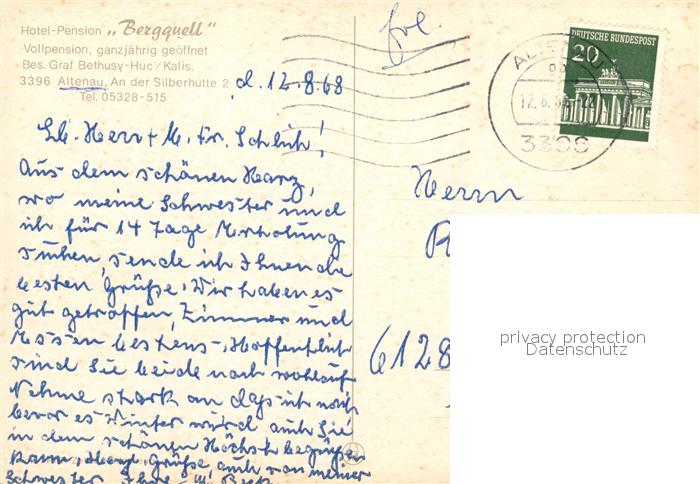 Hotel-Pension „Bergquell"
Vollpension, ganzjährig geöffnet
Bes. Graf Bethusy-Huc/Kalis.
3396 Altenau, An der Silberhütte 2
Tel. 05328-515
d. 12.8.68
DEUTSCHE BUNDESPOST
20
3396
Lb. Herr + Fr. Schlich!
Aus dem schönen Harz,
wo meine Schwester und
ich für 14 Tage Erholung
suchen, sende ich Ihnen die
besten Grüße. Wir haben es
gut getroffen, Zimmer und
Essen bestens. Hoffentlich
sind Sie beide noch wohlauf
Nehme stark an daß ich noch
bevor es Winter wird auch Sie
in dem schönen Höchst begrüßen
kann, Herzl. Grüße, auch von meiner
Schwester Ihre
Herrn
6128
privacy protection
Datenschutz